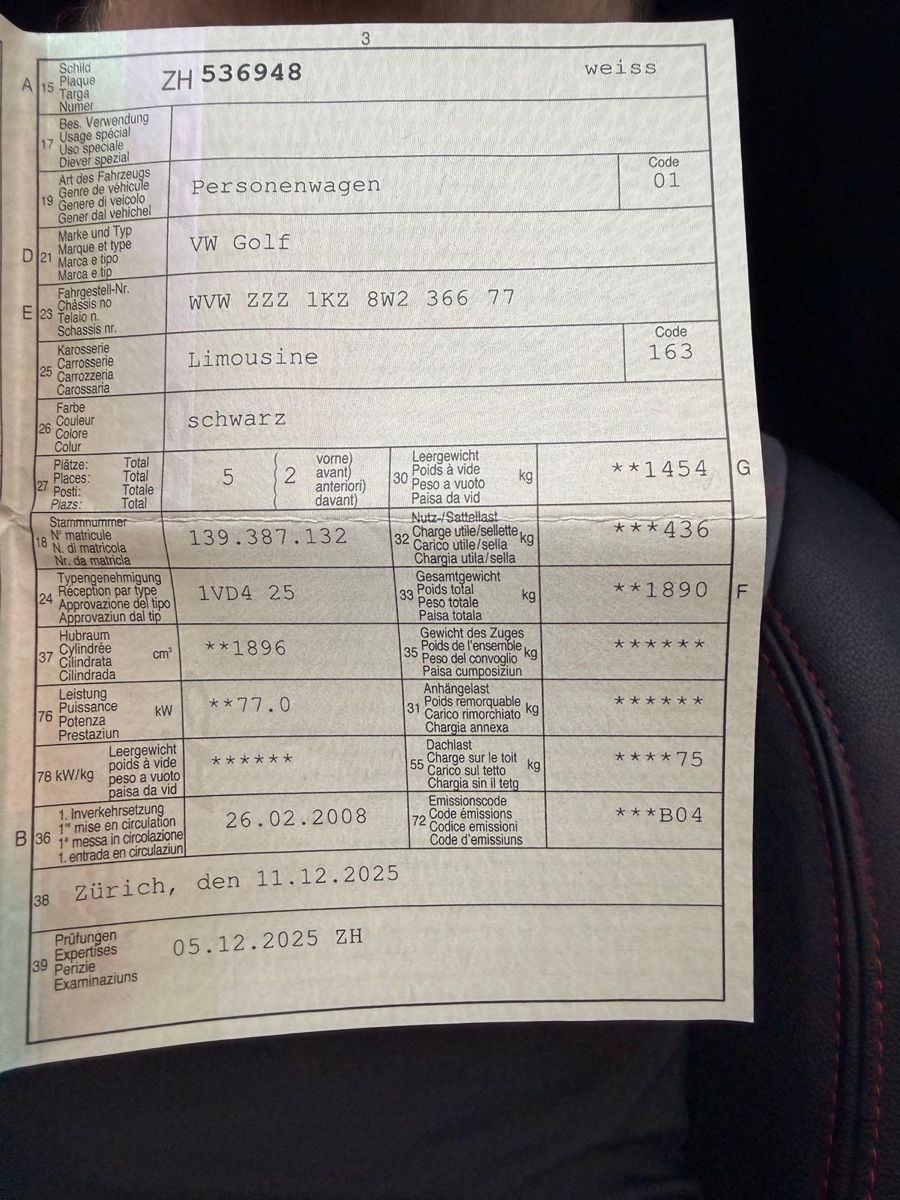 3
A 15 Schild ZH 536948 weiss
Plaque
Targa
Numer
17 Bes. Verwendung
Usage spécial
Uso speciale
Diever spezial
19 Art des Fahrzeugs Personenwagen Code
Genre de véhicule 01
Genere di veicolo
Gener dal vehichel
D 21 Marke und Typ VW Golf
Marque et type
Marca e tipo
Marca e tip
E 23 Fahrgestell-Nr. WVW ZZZ 1KZ 8W2 366 77
Châssis no
Telaio n.
Schassis nr.
25 Karosserie Limousine Code
Carrosserie 163
Carrozzeria
Carossaria
26 Farbe schwarz
Couleur
Colore
Colur
27 Plätze: Total 5 ( 2 vorne)
Places: Total avant)
Posti: Totale anteriori)
Plazs: Total davant)
30 Leergewicht kg **1454 G
Poids à vide
Peso a vuoto
Paisa da vid
18 Stammnummer 139.387.132
N° matricule
N. di matricola
Nr. da matricla
32 Nutz-/Sattellast kg ***436
Charge utile/sellette
Carico utile/sella
Chargia utila/sella
24 Typengenehmigung 1VD4 25
Réception par type
Approvazione del tipo
Approvaziun dal tip
33 Gesamtgewicht kg **1890 F
Poids total
Peso totale
Paisa totala
37 Hubraum cm³ **1896
Cylindrée
Cilindrata
Cilindrada
35 Gewicht des Zuges kg ******
Poids de l'ensemble
Peso del convoglio
Paisa cumposiziun
76 Leistung kW **77.0
Puissance
Potenza
Prestaziun
31 Anhängelast kg ******
Poids remorquable
Carico rimorchiato
Chargia annexa
78 kW/kg Leergewicht ******
poids à vide
peso a vuoto
paisa da vid
55 Dachlast kg ****75
Charge sur le toit
Carico sul tetto
Chargia sin il tetg
B 36 1. Inverkehrsetzung 26.02.2008
1re mise en circulation
1a messa in circolazione
1. entrada en circulaziun
72 Emissionscode ***B04
Code émissions
Codice emissioni
Code d'emissiuns
38 Zürich, den 11.12.2025
39 Prüfungen 05.12.2025 ZH
Expertises
Perizie
Examinaziuns